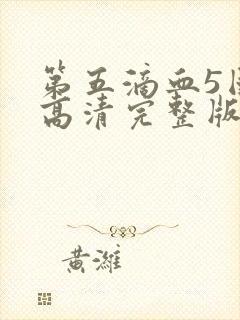 第五滴血5
高清完整版
黄潍